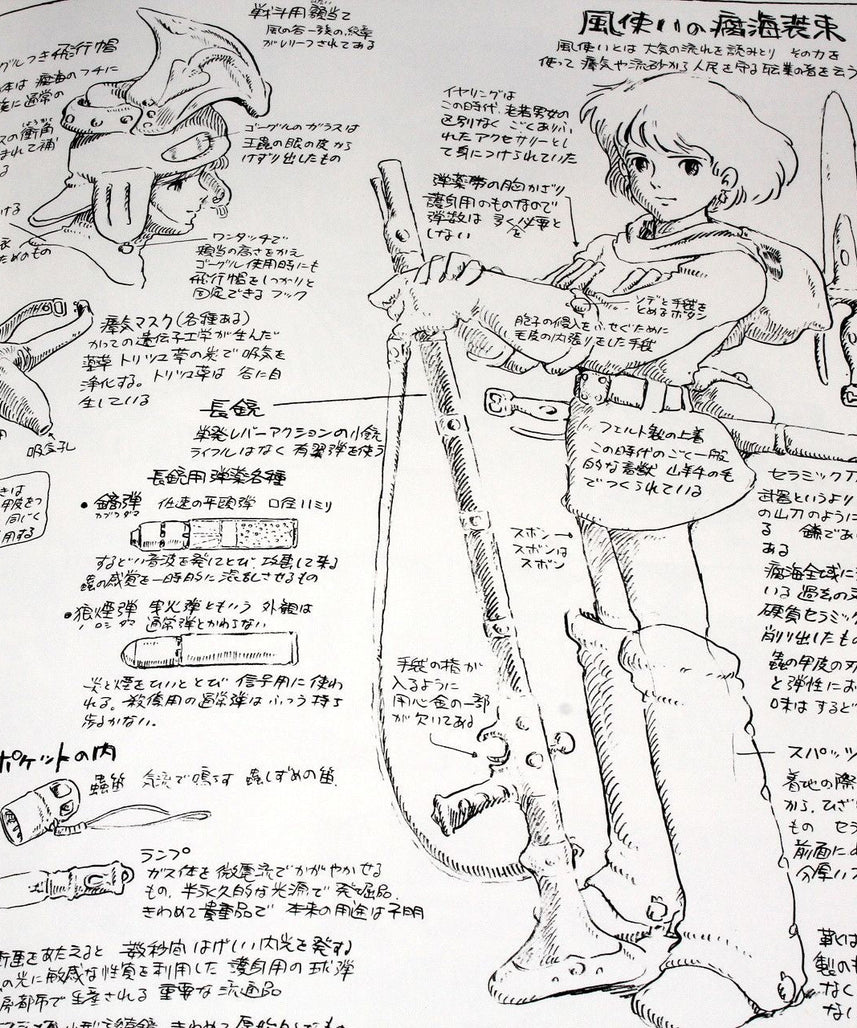 風使いの腐海装束
風使いとは 大気の流れを読みとり その力を
使って 瘴気や流砂から人民を守る 職業の者を云う
戦斗用額当て
風の谷一族の紋章
がレリーフされてある
グルつき飛行帽
体は 腐海のフチに
ゴーグルのガラスは
王蟲の眼の皮から
けずり出したもの
ワンタッチで
額当の高さをかえ
ゴーグル使用時にも
飛行帽をしっかりと
固定できる フック
イヤリングは
この時代、老若男女の
区別なく ごくありふ
れたアクセサリーとし
て身につけられていた
弾薬帯の胸かざり
護身用のものなので
弾数は 多くを必要と
しない
ソデと手袋を
とめるボタン
胞子の侵入をふせぐために
毛皮の内張りをした手袋
瘴気マスク(各種ある)
かっての遺伝子工学が生んだ
薬草 トリツユ草の光で 吸気を
浄化する。トリツユ草は 谷に自
生している
吸気孔
長銃
単発レバーアクションの小銃
ライフルはなく 有翼弾を使う
長銃用弾薬各種
•鏑弾 低速の平頭弾 口径11ミリ
カブラダマ
するどい音波を発してとび 攻撃して来る
蟲の感覚を一時的に混乱させるもの
•狼煙弾 曳火弾ともいう 外観は
ノロシダマ 通常弾とかわらない
光と煙をひいてとび 信号用に使わ
れる。殺傷用の通常弾はふつう持ち
歩かない。
フェルト製の上着
この時代のごく一般
的な着獣 山羊牛の毛
でつくられている
スボン
スボンは
スボン
手袋の指が
入るように
用心金の一部
が欠いてある
ポケットの内
蟲笛 気流で鳴らす 蟲しずめの笛
ランプ
ガス体を微電流でかがやかせる
もの、半永久的な光源で 発掘品、
きわめて貴重品で 本来の用途は不明
衝撃をあたえると 数秒間 はげしい閃光を発する
の光に敏感な性質を利用した 護身用の 球弾
房都市で生産される 重要な流通品
セラミック刀
武器というより
の山刀のように
る
ある
腐海全域に
いる 過去の
硬質セラミッ
削り出したもの
蟲の甲皮の刃
と弾性にお
味は するど
スパッツ
着地の際
から、ひざ
もの セラ
前面に
靴は
製のも
なく